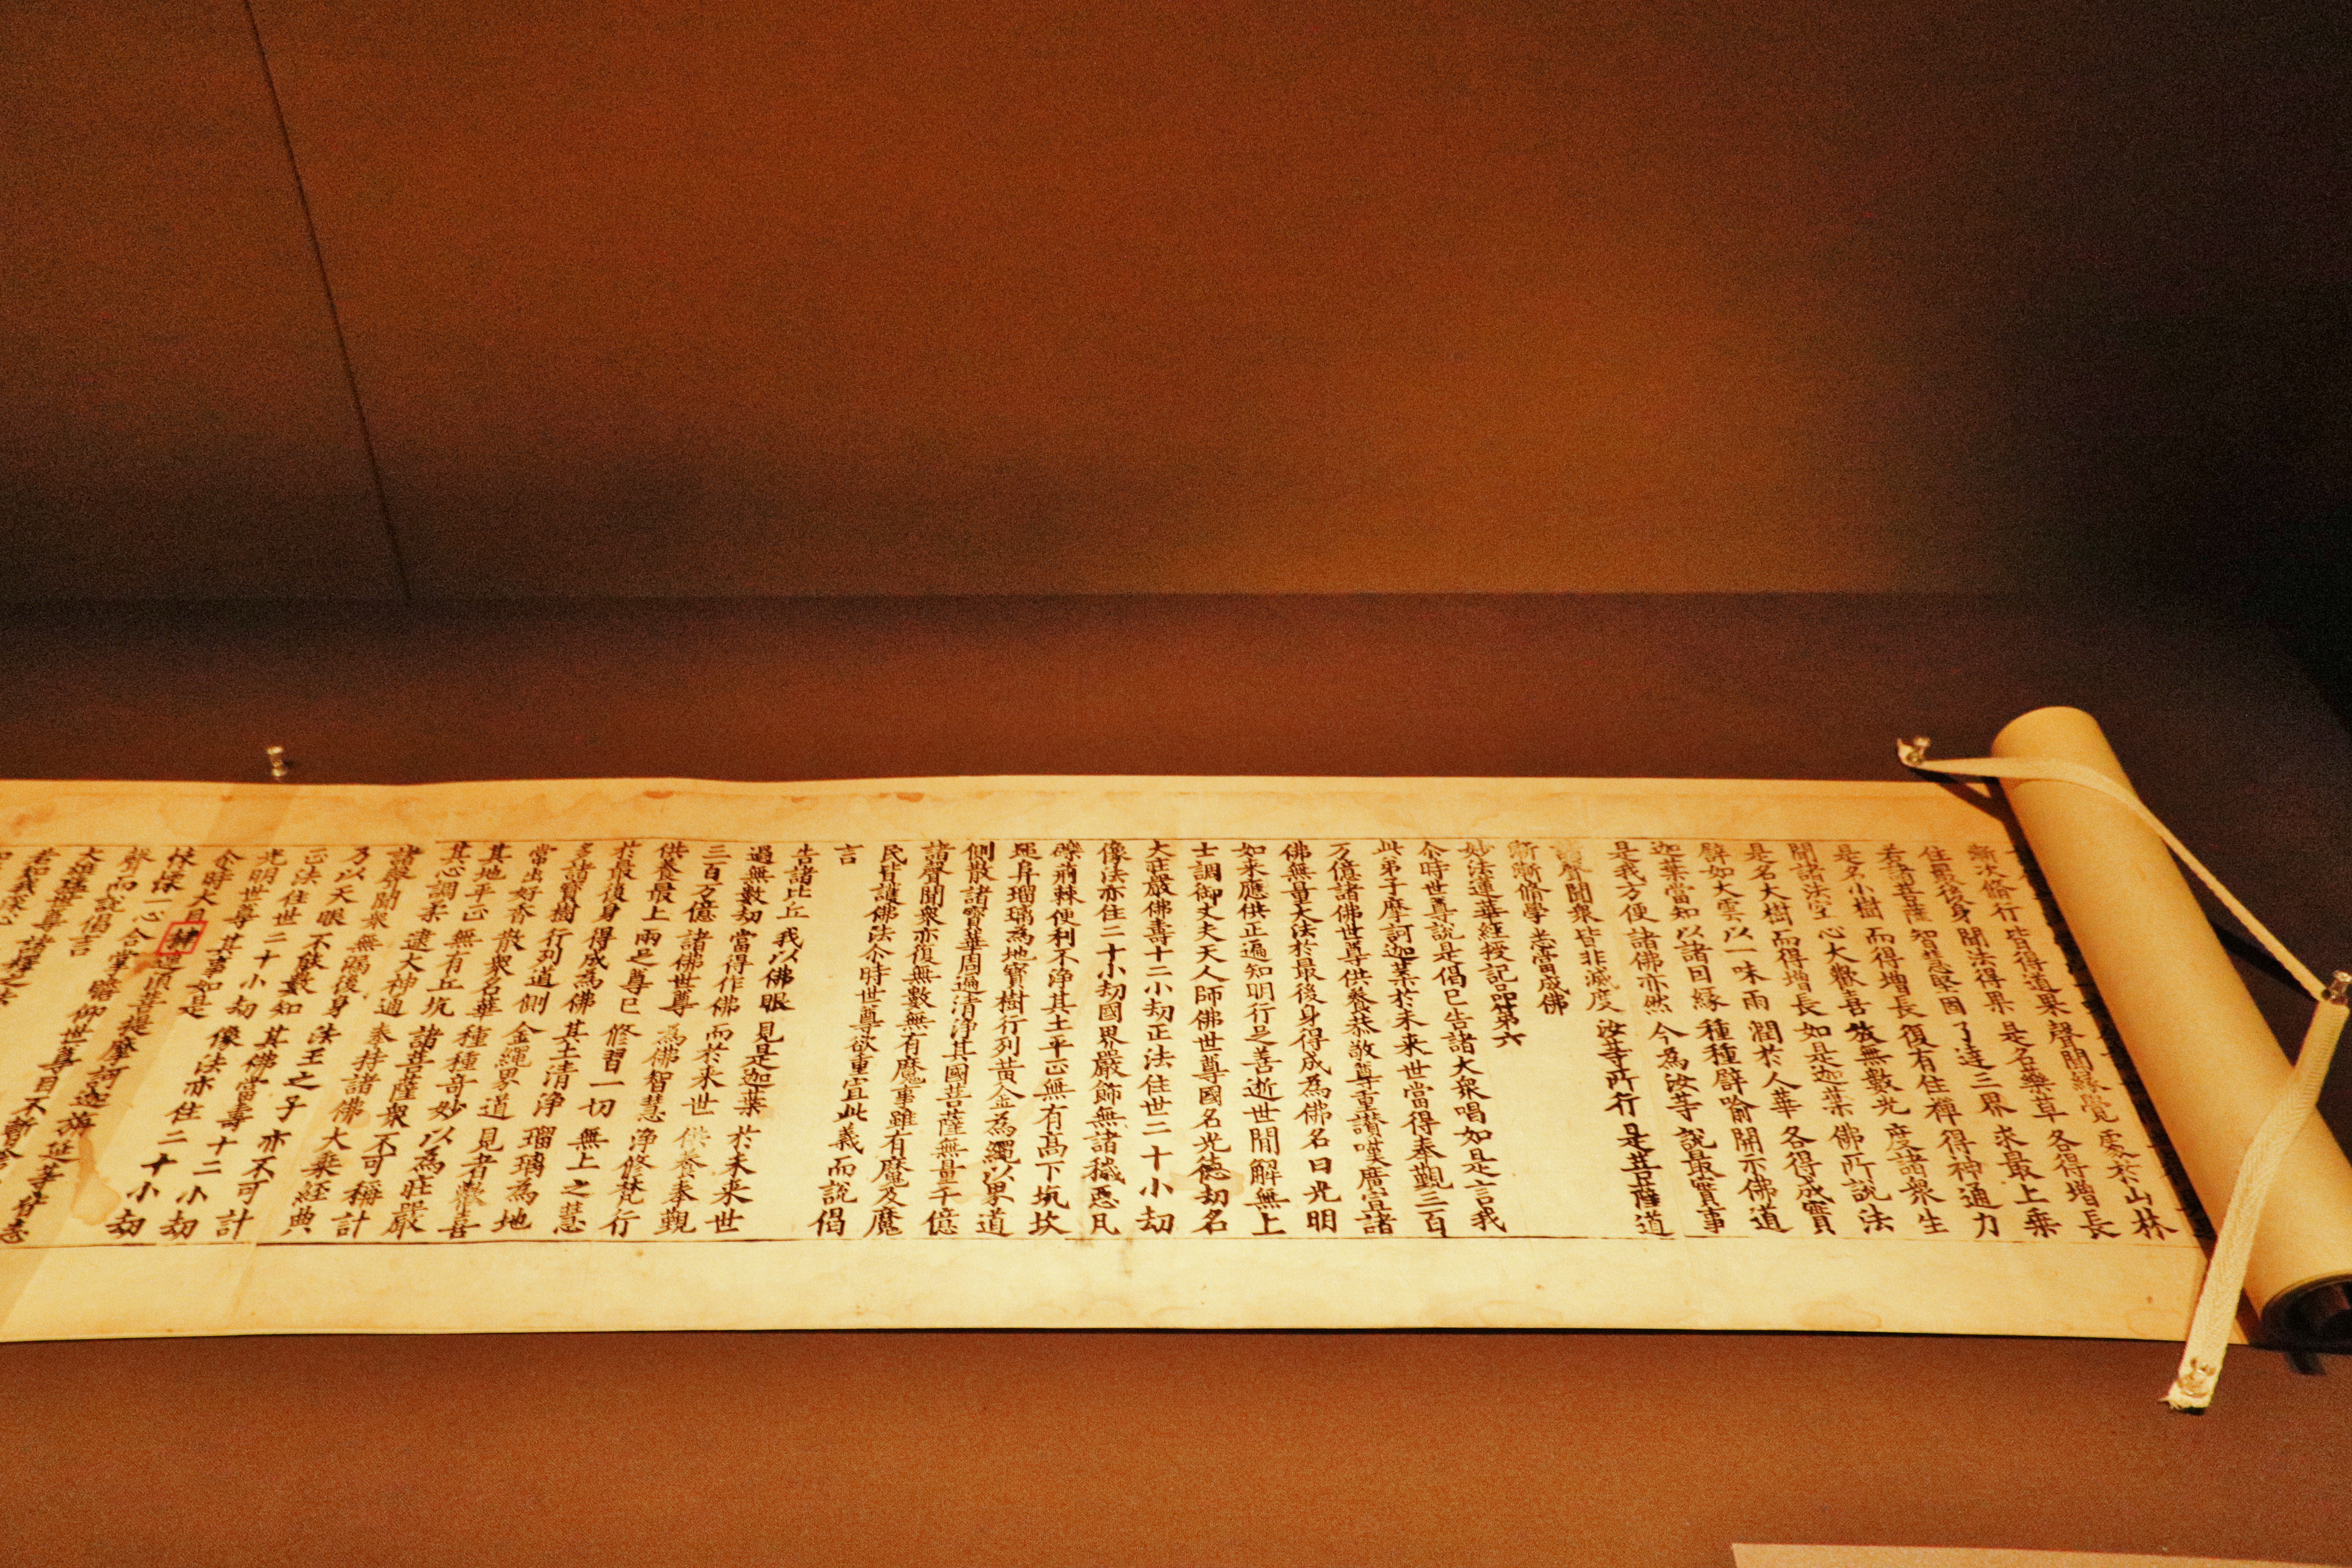 漸次脩行 皆得道果 聲聞緣覺 處於山林
住最後身 聞法得果 是名藥草 各得增長
若諸菩薩 智慧堅固 了達三界 求最上乘
是名小樹 而得增長 復有住禪 得神通力
聞諸法空 心大歡喜 放無數光 度諸衆生
是名大樹 而得增長 如是迦葉 佛所說法
譬如大雲 以一味雨 潤於人華 各得成實
迦葉當知 以諸因緣 種種譬喻 開示佛道
是我方便 諸佛亦然 今為汝等 說最實事
諸聲聞衆 皆非滅度 汝等所行 是菩薩道
漸漸脩學 悉當成佛
妙法蓮華經授記品第六
尒時世尊說是偈已告諸大衆唱如是言我
此弟子摩訶迦葉於未来世當得奉覲三百
万億諸佛世尊供養恭敬尊重讚嘆廣宣諸
佛無量大法於最後身得成為佛名曰光明
如来應供正遍知明行足善逝世間解無上
士調御丈夫天人師佛世尊國名光德劫名
大莊嚴佛壽十二小劫正法住世二十小劫
像法亦住二十小劫國界嚴飾無諸穢惡瓦
礫荊棘便利不淨其土平正無有高下坑坎
堆阜瑠璃為地寶樹行列黃金為繩以界道
側散諸寶華周遍清淨其國菩薩無量千億
諸聲聞衆亦復無數無有魔事雖有魔及魔
民皆護佛法尒時世尊欲重宣此義而說偈
言
告諸比丘 我以佛眼 見是迦葉 於未来世
過無數劫 當得作佛 而於来世 供養奉覲
三百万億 諸佛世尊 為佛智慧 淨修梵行
供養最上 兩足尊已 修習一切 無上之慧
於最後身 得成為佛 其土清淨 瑠璃為地
多諸寶樹 行列道側 金繩界道 見者歡喜
常出好香 散衆名華 種種奇妙 以為莊嚴
其地平正 無有丘坑 諸菩薩衆 不可稱計
其心調柔 逮大神通 奉持諸佛 大乘經典
諸聲聞衆 無漏後身 法王之子 亦不可計
乃以天眼 不能數知 其佛當壽 十二小劫
正法住世 二十小劫 像法亦住 二十小劫
光明世尊 其事如是
尒時大目揵連須菩提摩訶迦旃延等皆悉
悚慄一心合掌瞻仰世尊目不暫
聲而說偈言
大雄世尊 諸釋之法
若我深心